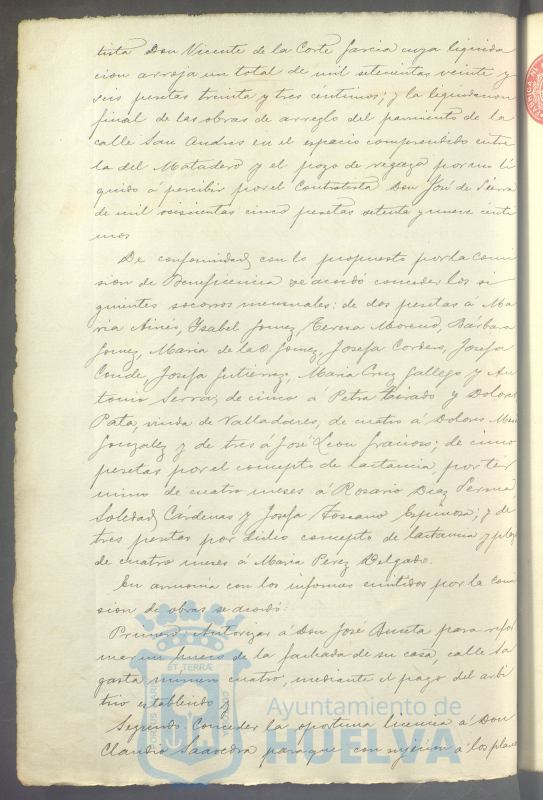 tista Don Vicente de la Corte Garcia cuya liquida
cion arroja un total de mil setecientas veinte y
seis pesetas treinta y tres céntimos; y la liquidacion
final de las obras de arreglo del pavimento de la
calle San Andres en el espacio comprendido entre
la del Matadero y el pozo de por un lí
quido á percibir por el Contratista Don José de Sierra
de mil seiscientas cinco pesetas setenta y nueve cénti
mos
De conformidad con lo propuesto por la Comi
sion de Beneficencia se acordó conceder los si
guientes socorros mensuales: de dos pesetas á Ma
ria Isabel Gomez, Teresa Moreno, Bárbara
Gomez, Maria de la O. Gomez, Josefa Cordero, Josefa
Conde, Josefa Gutierrez, Maria Cruz Gallego y An
tonio Serra; de cinco a Petra y Dolores
Pata, viuda de Valladares, de cuatro á Dolores
Gonzalez y de tres á José Leon Gracioso; de cinco
pesetas por el concepto de lactancia, por tér
mino de cuatro meses á Rosario Diaz
Soledad Cárdenas y Josefa Toscano Espinosa; y de
tres pesetas por dicho concepto de lactancia y plazo
de cuatro meses á Maria Perez Delgado.
En armonia con los informes emitidos por la comi
sion de obras se acordó:
Primero: Autorizar á Don José para refor
mar un hueco de la fachada de su casa, calle Sa
gasta número cuatro, mediante el pago del arbi
trio establecido y
Segundo: Conceder la oportuna licencia á Don
Claudio Saavedra para que con sujecion á los plano
ET TERRÆ
Ayuntamiento de
HUELVA